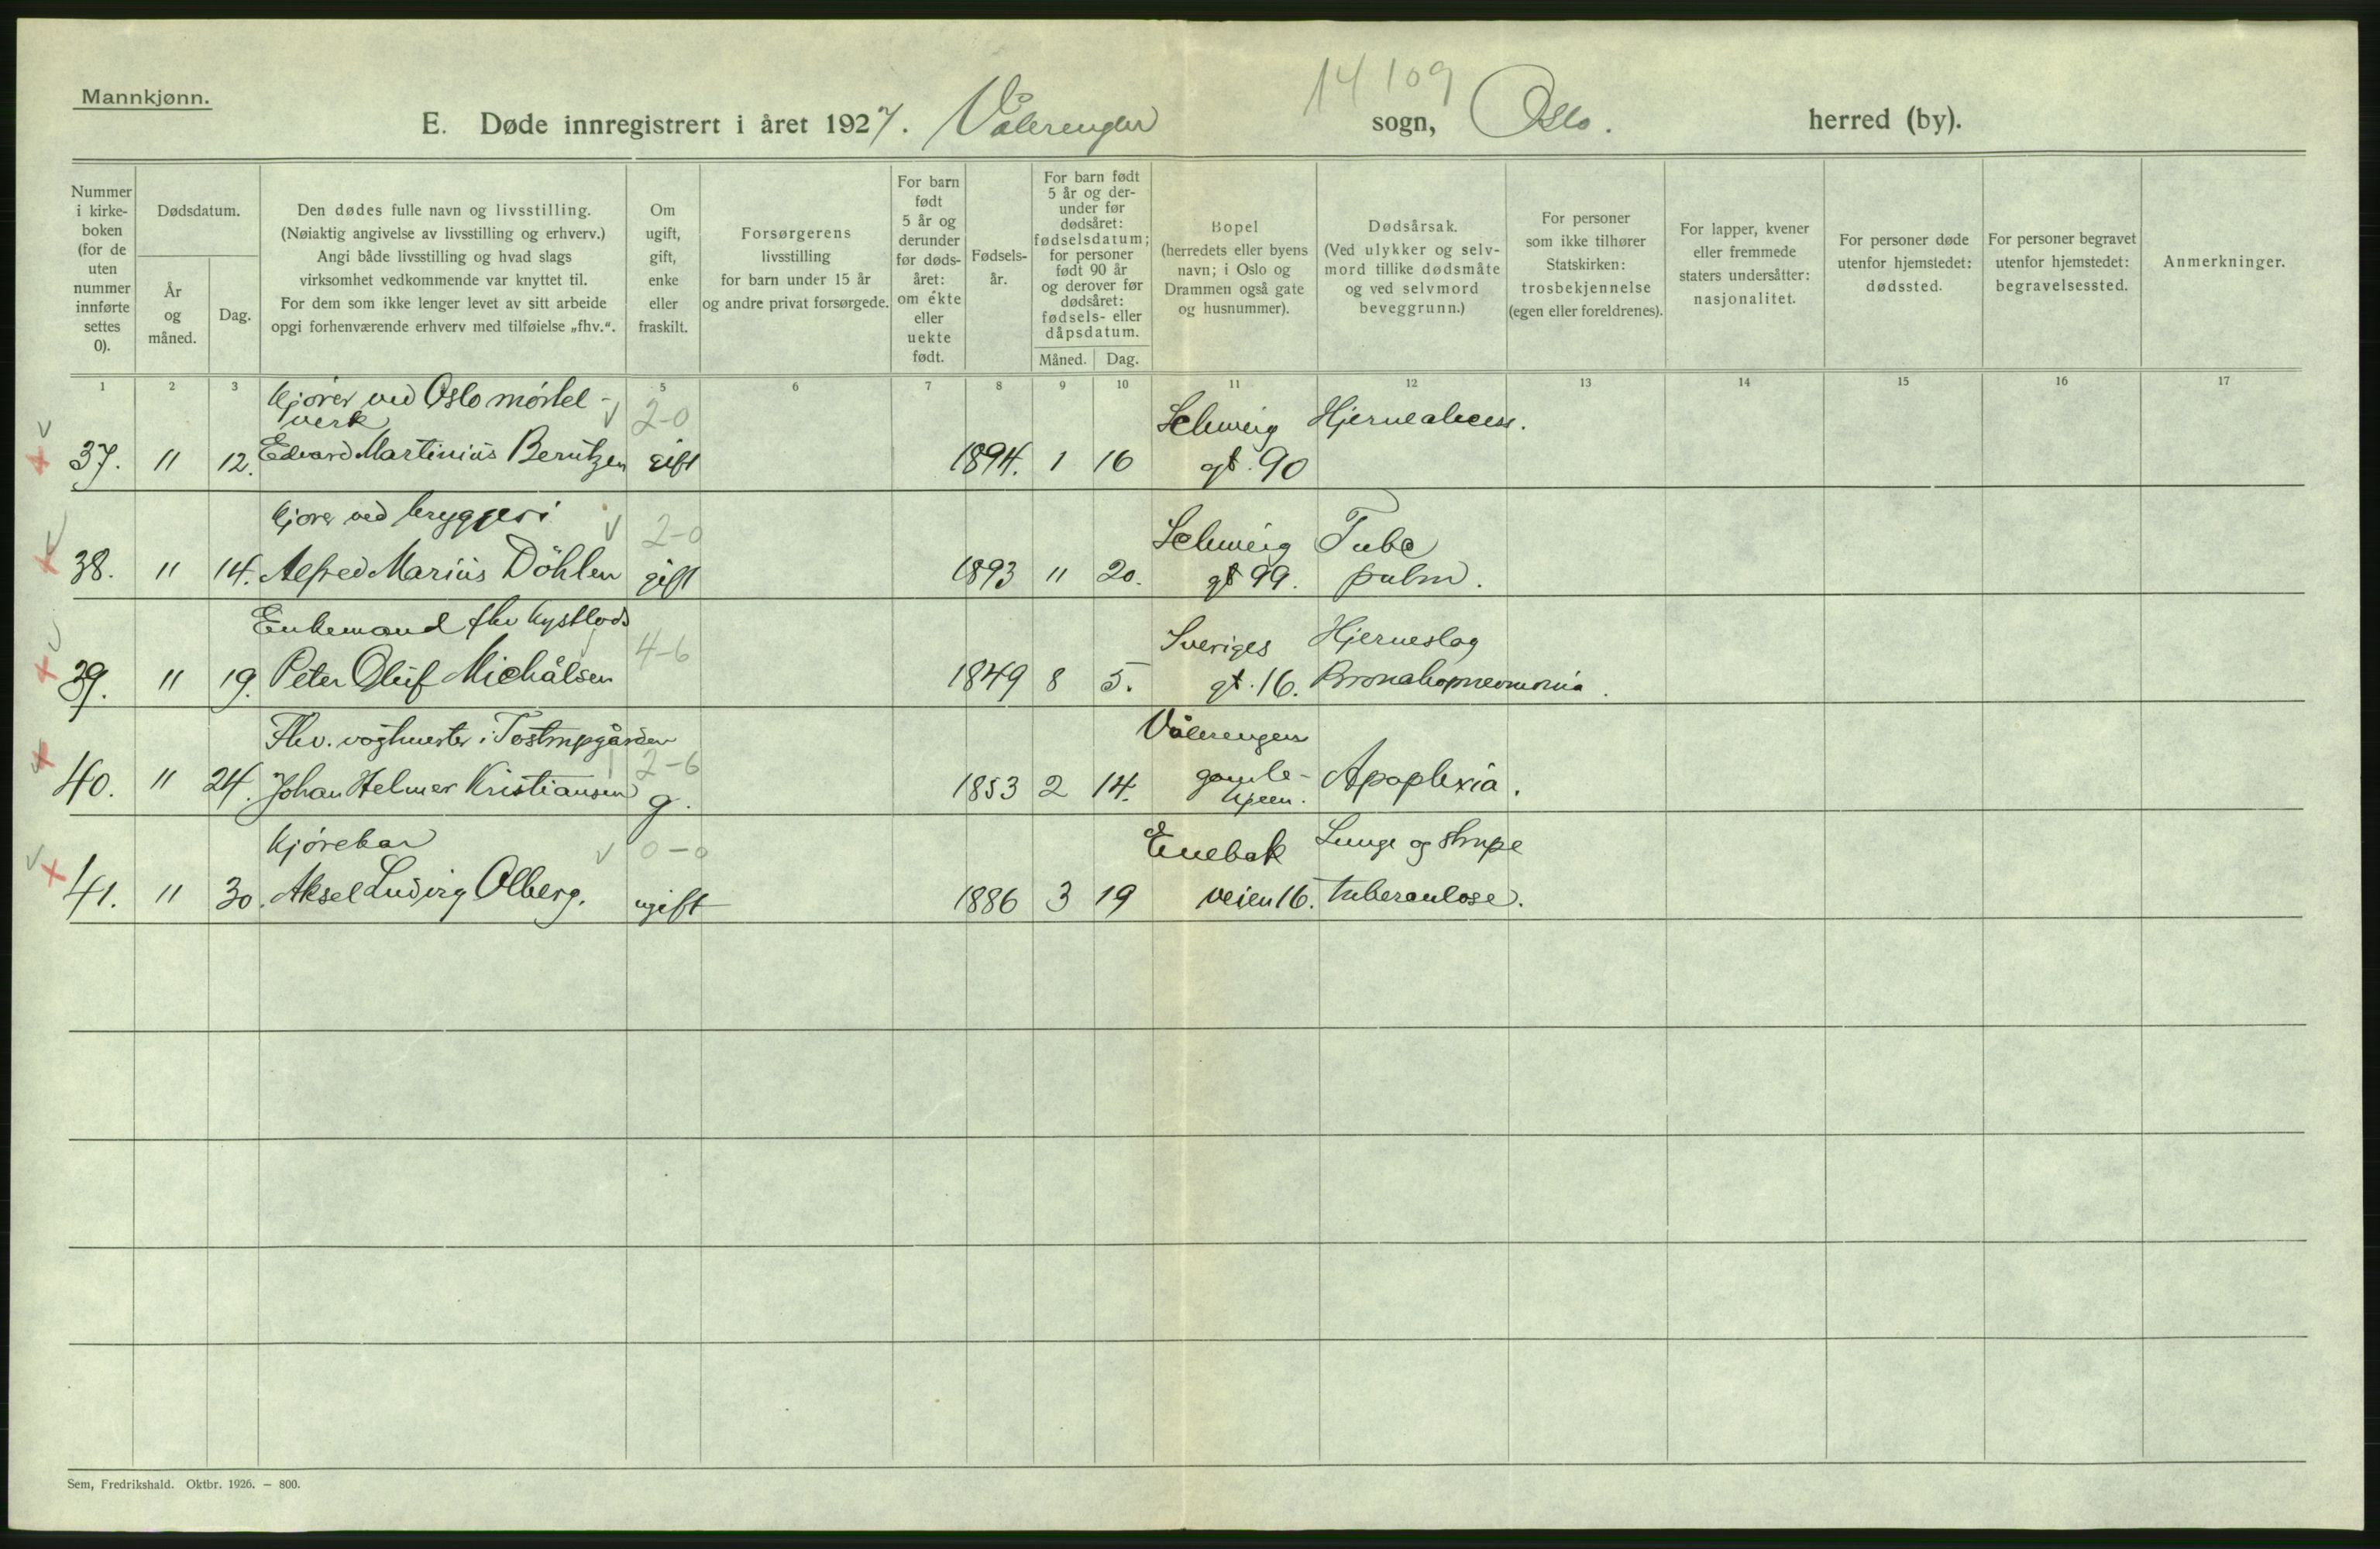 Mannkjønn.
14 109
E. Døde innregistrert i året 1927. Vålerengen sogn, Oslo. herred (by).
Nummer i kirke-boken (for de uten nummer innførte settes 0).
Dødsdatum.
År og måned.
Dag.
Den dødes fulle navn og livsstilling.
(Nøiaktig angivelse av livsstilling og erhverv.)
Angi både livsstilling og hvad slags
virksomhet vedkommende var knyttet til.
For dem som ikke lenger levet av sitt arbeide
opgi forhenværende erhverv med tilføielse „fhv.“.
Om ugift, gift, enke eller fraskilt.
Forsørgerens
livsstilling
for barn under 15 år
og andre privat forsørgede.
For barn født 5 år og derunder før døds-året: om ekte eller uekte født.
Fødsels-år.
For barn født 5 år og der-under før dødsåret: fødselsdatum; for personer født 90 år og derover før dødsåret: fødsels- eller dåpsdatum.
Måned.
Dag.
Bopel
(herredets eller byens
navn; i Oslo og
Drammen også gate
og husnummer).
Dødsårsak.
(Ved ulykker og selv-
mord tillike dødsmåte
og ved selvmord
beveggrunn.)
For personer
som ikke tilhører
Statskirken:
trosbekjennelse
(egen eller foreldrenes).
For lapper, kvener
eller fremmede
staters undersåtter:
nasjonalitet.
For personer døde
utenfor hjemstedet:
dødssted.
For personer begravet
utenfor hjemstedet:
begravelsessted.
Anmerkninger.
1 2 3 5 6 7 8 9 10 11 12 13 14 15 16 17
Kjører ved Oslo mørtel-
verk 2-0 Schweig Hjerneabcess.
37. " 12. Edvard Martinius Berntzen gift 1894. 1 16 gt. 90
Kjører ved bryggeri 2-0 Schweig Tubc
38. " 14. Alfred Marius Döhlen gift 1893 11 20. gt 99. pulm.
Enkemand fhv kystlods 4-6 Sveriges Hjerneslag
39. " 19. Peter Oluf Michälsen 1849 8 5. gt. 16. Bronchopneumonia.
Fhv. vogtmester i Tostrupgården 2-6 Vålerengen
40. " 24. Johan Helmer Kristiansen g. 1853 2 14. gamle- Apoplexia.
hjem.
Kjørekar 0-0 Enebak Lunge og strupe
41. " 30. Aksel Ludvig Olberg. ugift 1886 3 19 veien 16. tuberculose.
Sem, Fredrikshald. Oktbr. 1926. — 800.